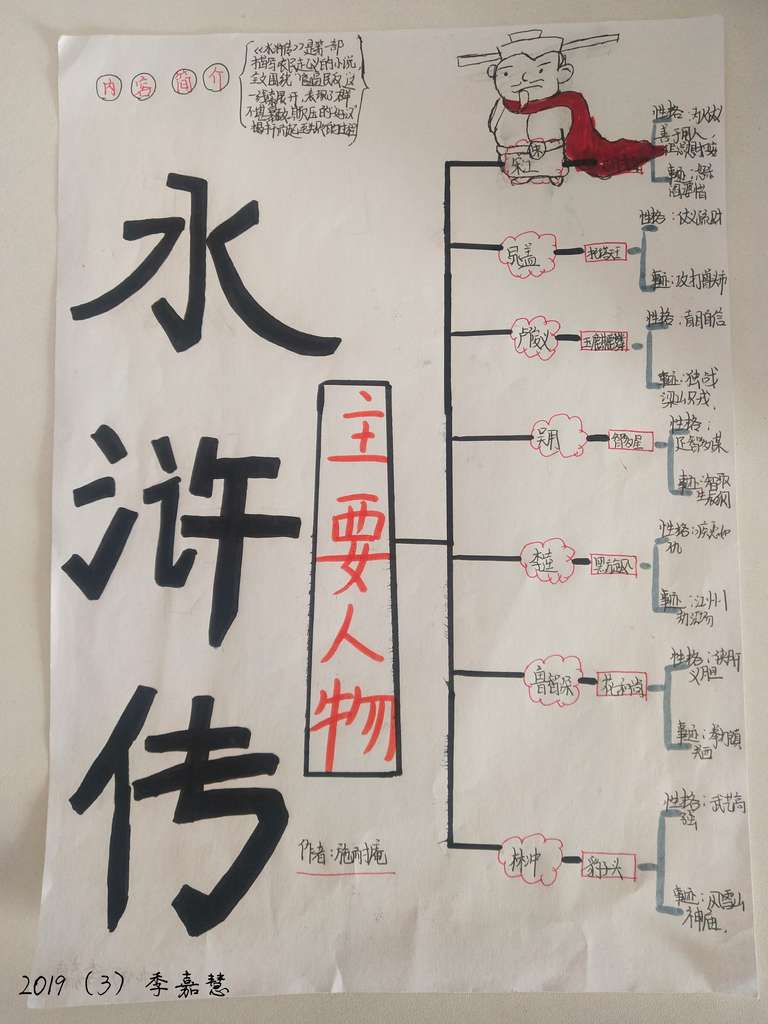 内容简介
《水浒传》是第一部
描写农民起义的小说
全文围绕"官逼民反"这
一线索展开,表现了群
不堪暴政欺压的好汉
水浒传
主要人物
作者:施耐庵
宋江
性格:
善于用人,
事迹:怒杀
阎婆惜
晁盖
托塔天王
性格:仗义疏财
事迹:攻打曾头市
卢俊义
玉麒麟
性格:盲目自信
事迹:独战
梁山
吴用
智多星
性格:
足智多谋
事迹:智取
生辰纲
李逵
黑旋风
性格:疾恶如
仇
事迹:江州
劫法场
鲁智深
花和尚
性格:侠肝
义胆
事迹:拳打镇
关西
林冲
豹子头
性格:武艺高
强
事迹:风雪山
神庙.
2019(3)季嘉慧